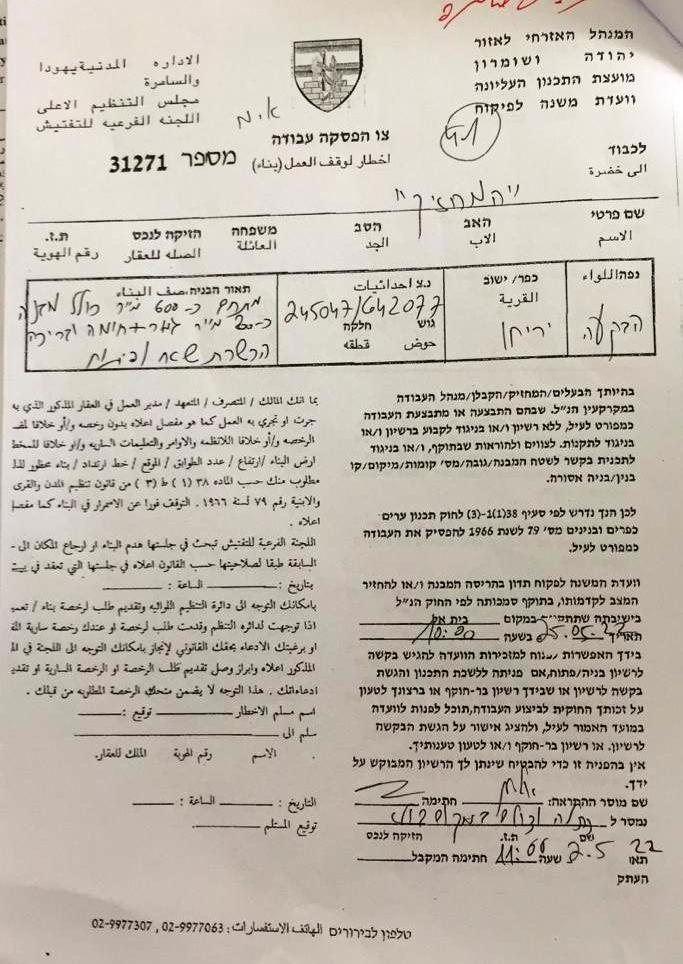 המנהל האזרחי לאזור
יהודה ושומרון
מועצת התכנון העליונה
וועדת משנה לפיקוח
الاداره المدنية يهودا
والسامرة
مجلس التنظيم الاعلى
اللجنه الفرعيه للتفتيش
צו הפסקה עבודה
اخطار لوقف العمل (بناء)
מספר 31271
לכבוד
الى حضرة
"המחזיק"
שם פרטי האב הסב משפחה הזיקה לנכס ת.ז.
الاسم الاب الجد العائلة الصله للعقار رقم الهوية
נפה اللواء
הבקעה
כפר/ ישוב
القرية
יריחו
נ.צ احداثيات
245047/642077
גוש חלקה
حوض قطقه
תאור הבניה صف البناء
מתחם כ-600 מ"ר כולל מבנה
כ-200 מ"ר גדר+חומה ובריכה
בהיותך הבעלים/המחזיק/הקבלן/מנהל העבודה
במקרקעין הנ"ל. שבהם התבצעה או מתבצעת העבודה
כמפורט לעיל, ללא רשיון או בניגוד לקבוע ברשיון ו/או
בניגוד לתקנות. לצווים ולהוראות שבתוקף, ו/או בניגוד
לתכנית בקשר לשטח המבנה/גובה/מס' קומות/מיקום/קו
בנין/בניה אסורה.
לכן הנך נדרש לפי סעיף 38(1)(ו-3) לחוק תכנון ערים
כפרים ובנינים מס' 79 לשנת 1966 להפסיק את העבודה
כמפורט לעיל.
וועדת המשנה לפקוח תדון בהריסה המבנה ו/או להחזיר
המצב לקדמותו, בתוקף סמכותה לפי החוק הנ"ל
בישיבתה שתתקיים במקום בית אל
תאריך 25.05.22 בשעה 10:00
בידך האפשרות לפנות למזכירות הוועדה להגיש בקשה
לרשיון בניה/פתוח, אם פניתה ללשכת התכנון והגשת
בקשה לרשיון או שבידך רשיון בר-תוקף או ברצונך לטעון
על זכותך החוקית לביצוע העבודה, תוכל לפנות לוועדה
במועד האמור לעיל, ולהציג אישור על הגשת הבקשה
לרשיון. או רשיון בר-תוקף ו/או לטעון טענותיך.
אין בהפניה זו כדי להבטיח שינתן לך הרשיון המבוקש על
ידך.
שם מוסר ההתראה: חתימה
נמסר ל
שם ת.ז. הזיקה לנכס
תאר 2.5.22 שעה 11:00 חתימה המקבל
העתק
بما انك المالك / المتصرف / المتعهد / مدير العمل في العقار المذكور الذي به
جرت او تجري به العمل كما هو مفصل اعلاه بدون رخصه و/أو خلافا
الرخصه و/أو خلاف اللانظمه والاوامر والتعليمات الساريه و/او خلافا للمخط
ارض البناء /ارتفاع / عدد الطوابق / الموقع / خط ارتداد / بناء محظور
مطلوب منك حسب الماده ٣٨ (١) ط (٣) من قانون تنظيم المدن والقرى
والابنية رقم ٧٩ لسنة ١٩٦٦. التوقف فورا عن الاستمرار في البناء كما مفصل
اعلاه .
اللجنه الفرعية للتفتيش تبحث في جلستها هدم البناء او ارجاع المكان الى
السابقة طبقا لصلاحيتها حسب القانون اعلاه في جلستها التي تعقد في بيت
بتاريخ : الساعة :
بامكانك التوجه الى دائرة التنظيم اللوائيه وتقديم طلب لرخصة بناء / تعمير
اذا توجهت لدائرة التنظيم وقدمت طلب لرخصة او عندك رخصه سارية
او برغبتك الادعاء بحقك القانوني لإنجاز بامكانك التوجه الى اللجنة في
المذكور اعلاه وابراز وصل تقديم طلب الرخصة او الرخصة السارية او
ادعاءاتك . هذا التوجه لا يضمن منحك الرخصة المطلوبه من قبلك .
اسم مسلم الاخطار توقيع :
سلم الى
الاسم رقم الهوية الملك للعقار.
التاريخ : الساعة :
توقيع المستلم
טלפון לבירורים الهاتف الاستفسارات : 02-9977063 , 02-9977307